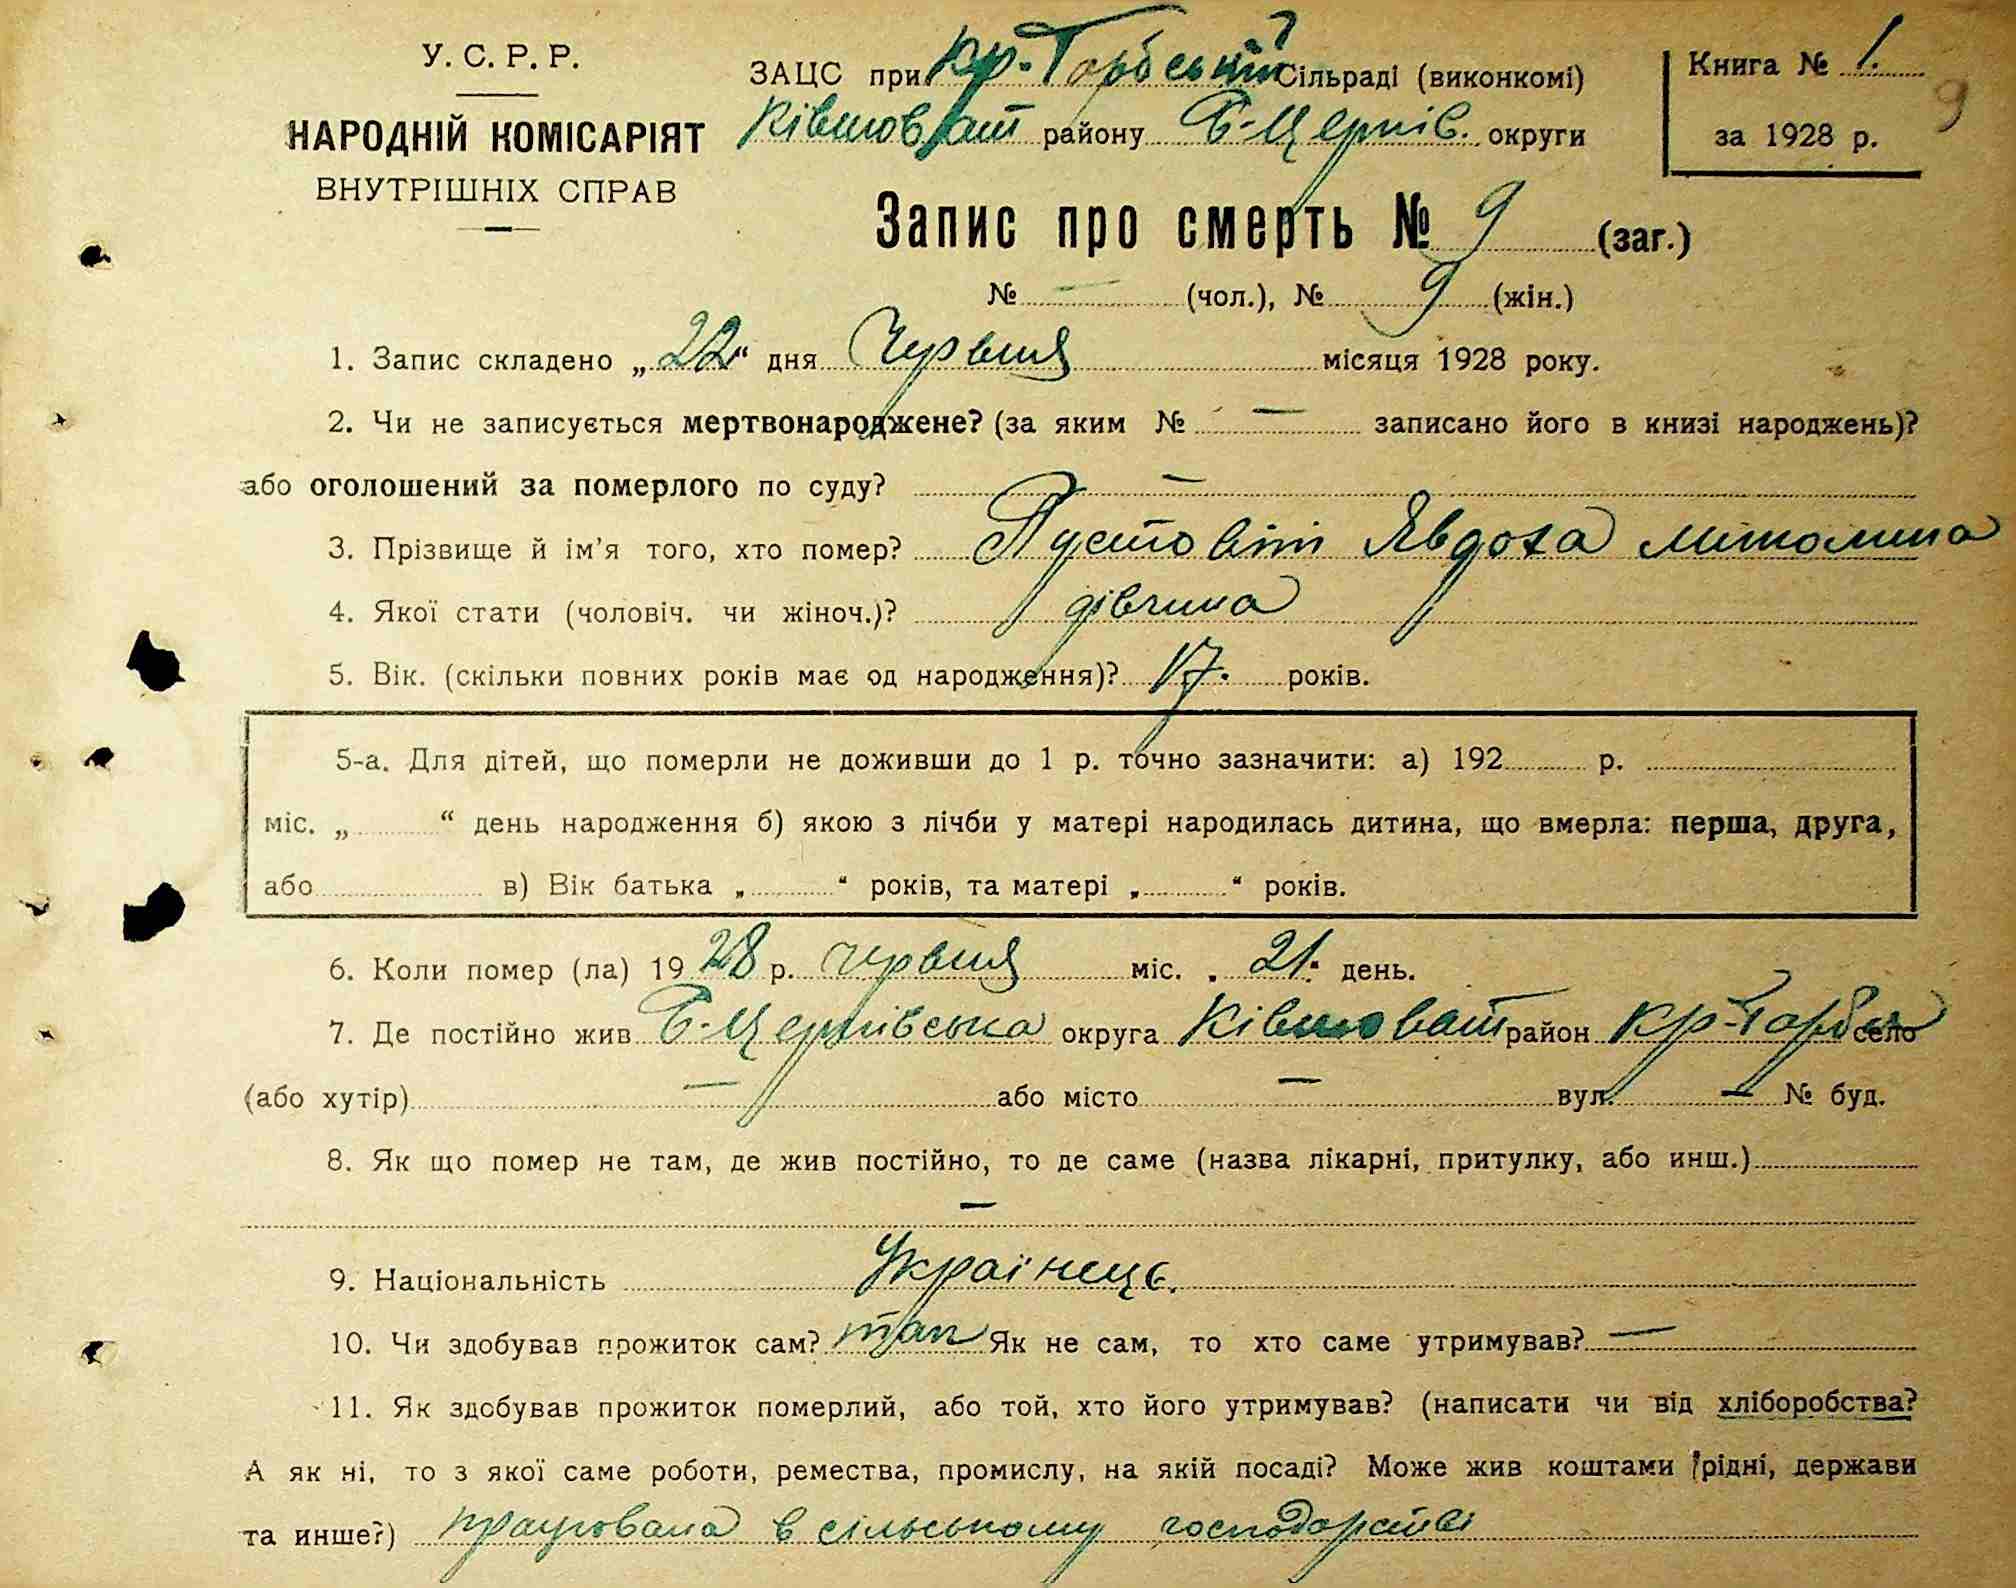 У. С. Р. Р.
НАРОДНІЙ КОМІСАРІЯТ
ВНУТРІШНІХ СПРАВ
ЗАЦС при Кр-Горбській Сільраді (виконкомі)
Ківшоват району Б-Церків. округи
Книга № 1.
за 1928 р.
9
Запис про смерть № 9 (заг.)
№ — (чол.), № 9 (жін.)
1. Запис складено „22“ дня Червня місяця 1928 року.
2. Чи не записується мертвонароджене? (за яким № — записано його в книзі народжень)?
або оголошений за померлого по суду? —
3. Прізвище й ім’я того, хто помер? Пустовіт Явдоха
4. Якої стати (чоловіч. чи жіноч.)? дівчина
5. Вік. (скільки повних років має од народження)? 17. років.
5-а. Для дітей, що померли не доживши до 1 р. точно зазначити: а) 192 р.
міс. „ “ день народження б) якою з лічби у матері народилась дитина, що вмерла: перша, друга,
або в) Вік батька „ “ років, та матері „ “ років.
6. Коли помер (ла) 1928 р. червня міс. „21“ день.
7. Де постійно жив Б-Церківська округа Ківшоват район Кр-Горби село
(або хутір) — або місто — вул. — № буд.
8. Як що помер не там, де жив постійно, то де саме (назва лікарні, притулку, або инш.)
—
9. Національність Українець.
10. Чи здобував прожиток сам? так Як не сам, то хто саме утримував? —
11. Як здобував прожиток померлий, або той, хто його утримував? (написати чи від хліборобства?
А як ні, то з якої саме роботи, ремества, промислу, на якій посаді? Може жив коштами рідні, держави
та инше?) працювала в сільському господарстві